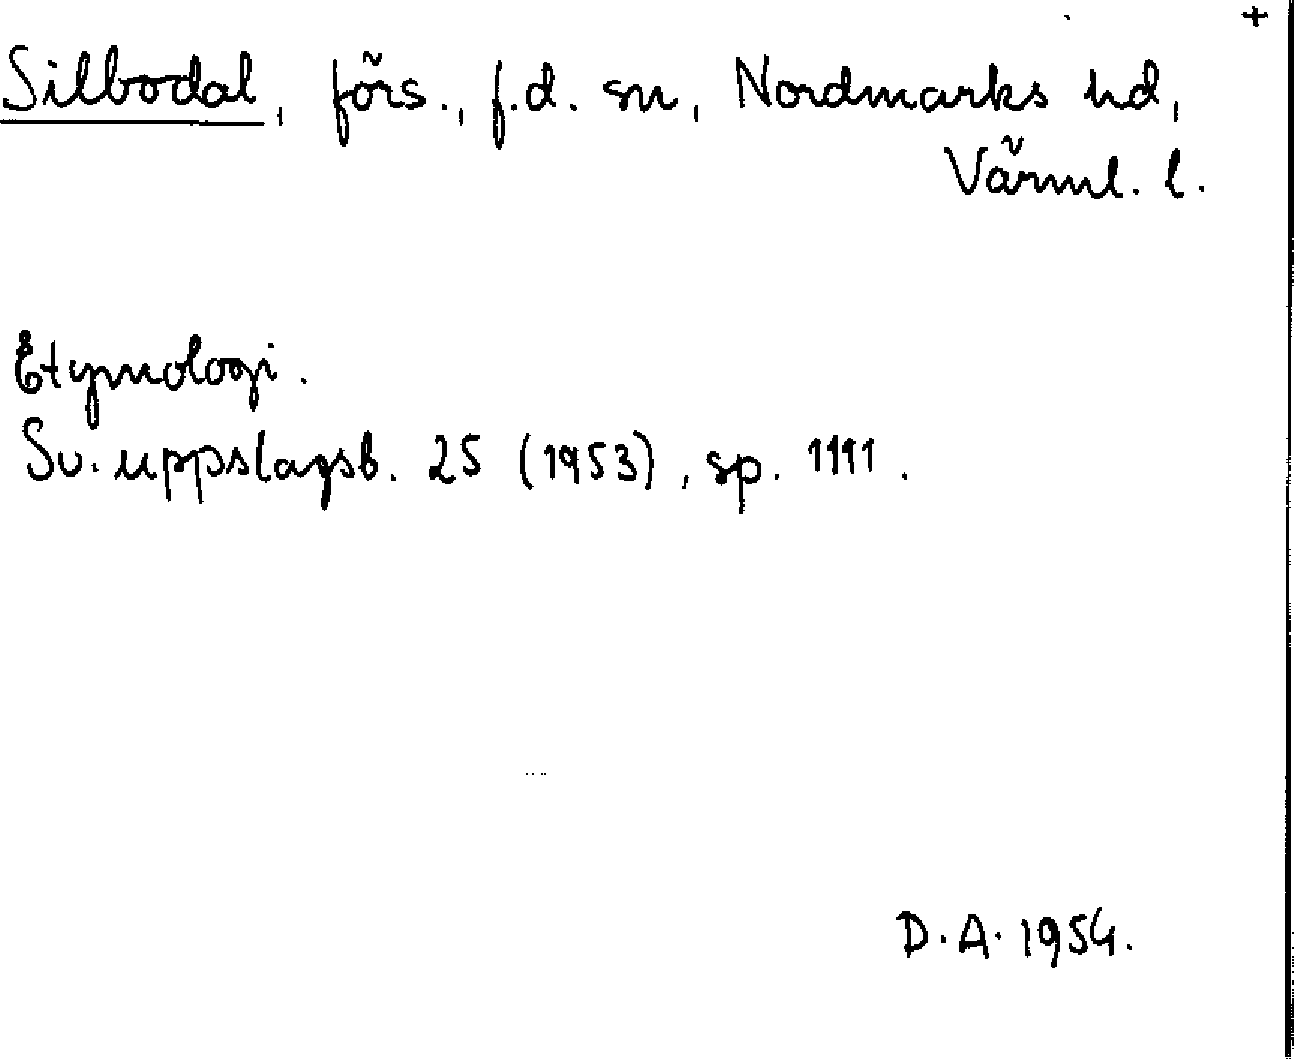 +
Silbodal, förs., f.d. sn, Nordmarks hd,
Värml. l.
Etymologi.
Sv. uppslagsb. 25 (1953), sp. 1111.
D.A. 1954.